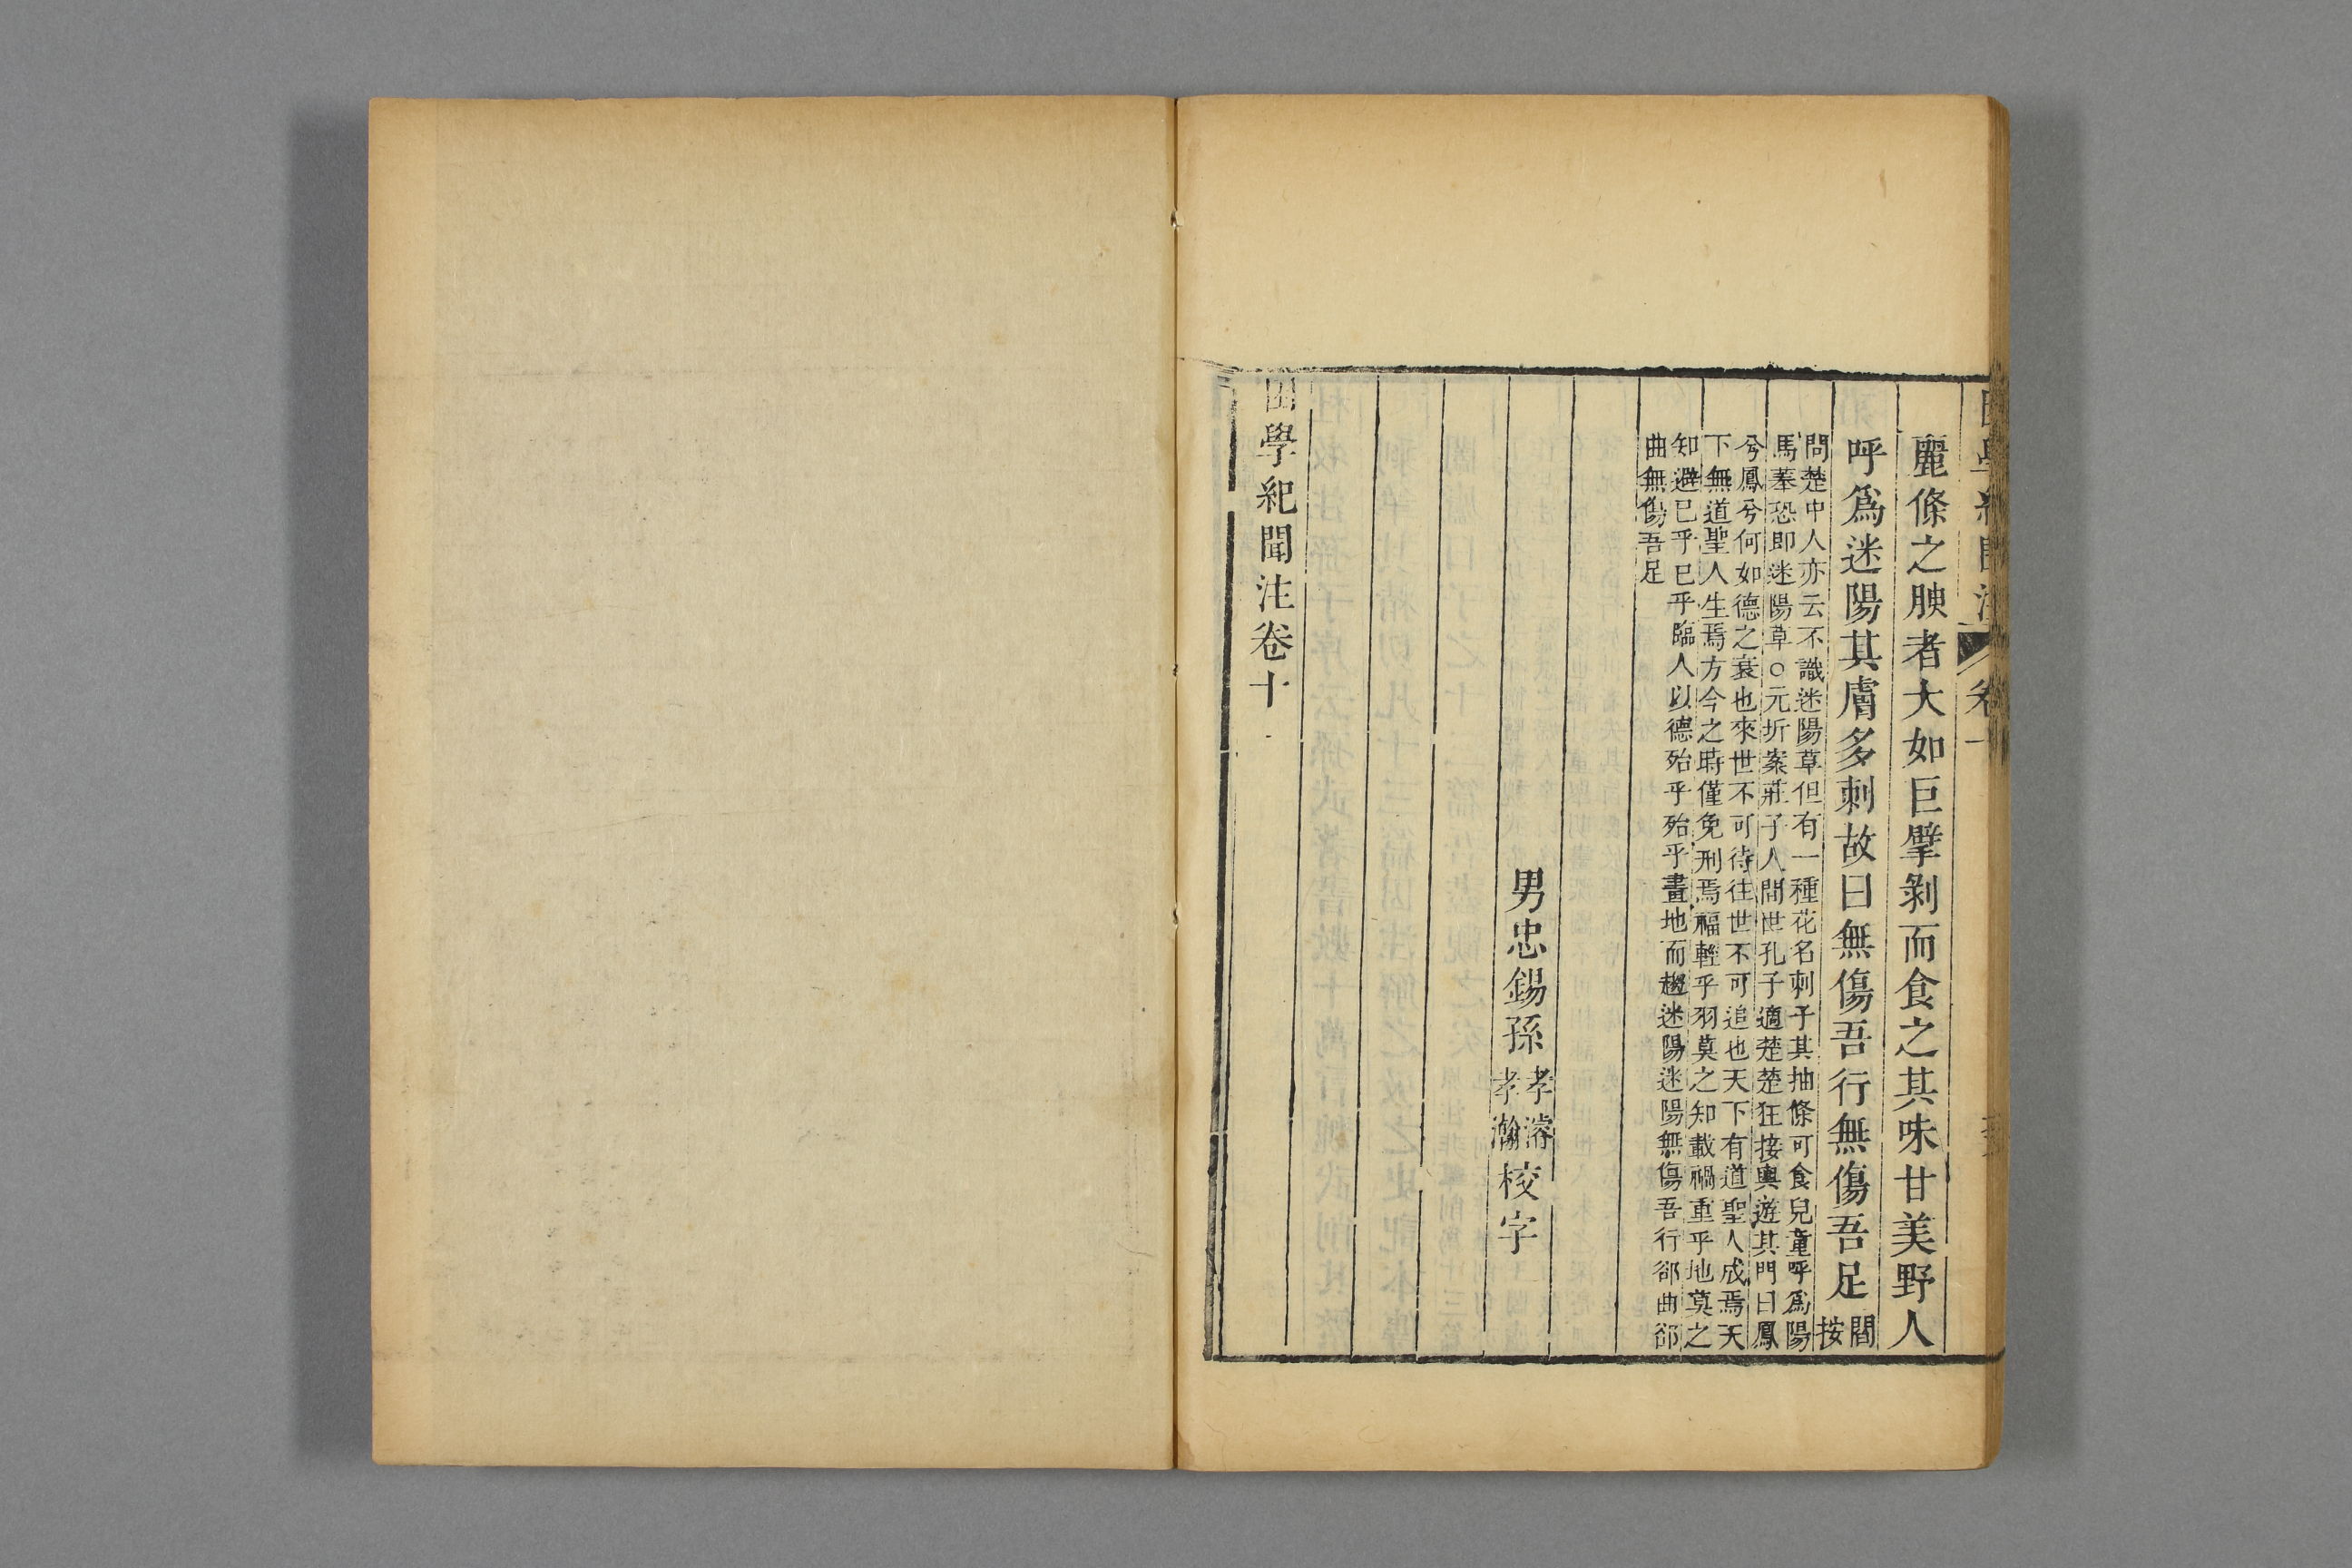 麗條之腴者大如巨擘剝而食之其味甘美野人
呼爲迷陽其膚多刺故曰無傷吾行無傷吾足閻按
問楚中人亦云不識迷陽草但有一種花名刺子其抽條可食兒童呼爲陽
馬藄恐即迷陽草○元圻案莊子人間世孔子適楚楚狂接輿遊其門曰鳳
兮鳳兮何如德之衰也來世不可待往世不可追也天下有道聖人成焉天
下無道聖人生焉方今之時僅免刑焉福輕乎羽莫之知載禍重乎地莫之
知避已乎已乎臨人以德殆乎殆乎畫地而趨迷陽迷陽無傷吾行郤曲郤
曲無傷吾足
男忠錫孫孝濬孝瀚校字
困學紀聞注卷十